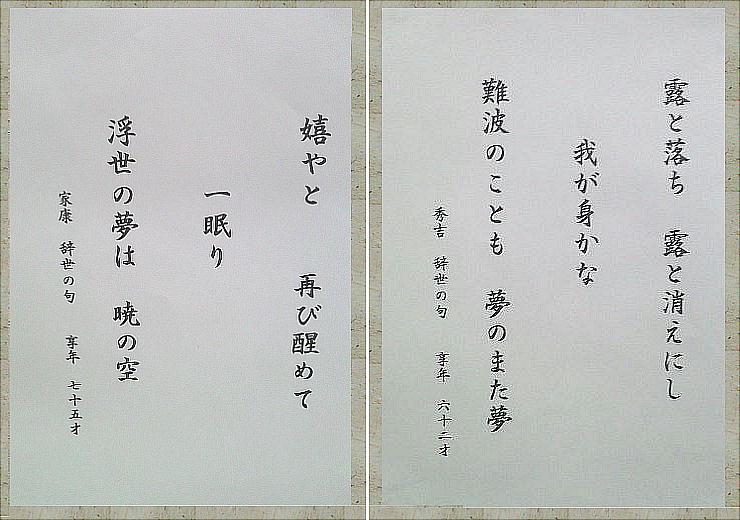 露と落ち 露と消えにし
我が身かな
難波のことも 夢のまた夢
秀吉 辞世の句 享年 六十二才
嬉やと 再び醒めて
一眠り
浮世の夢は 暁の空
家康 辞世の句 享年 七十五才